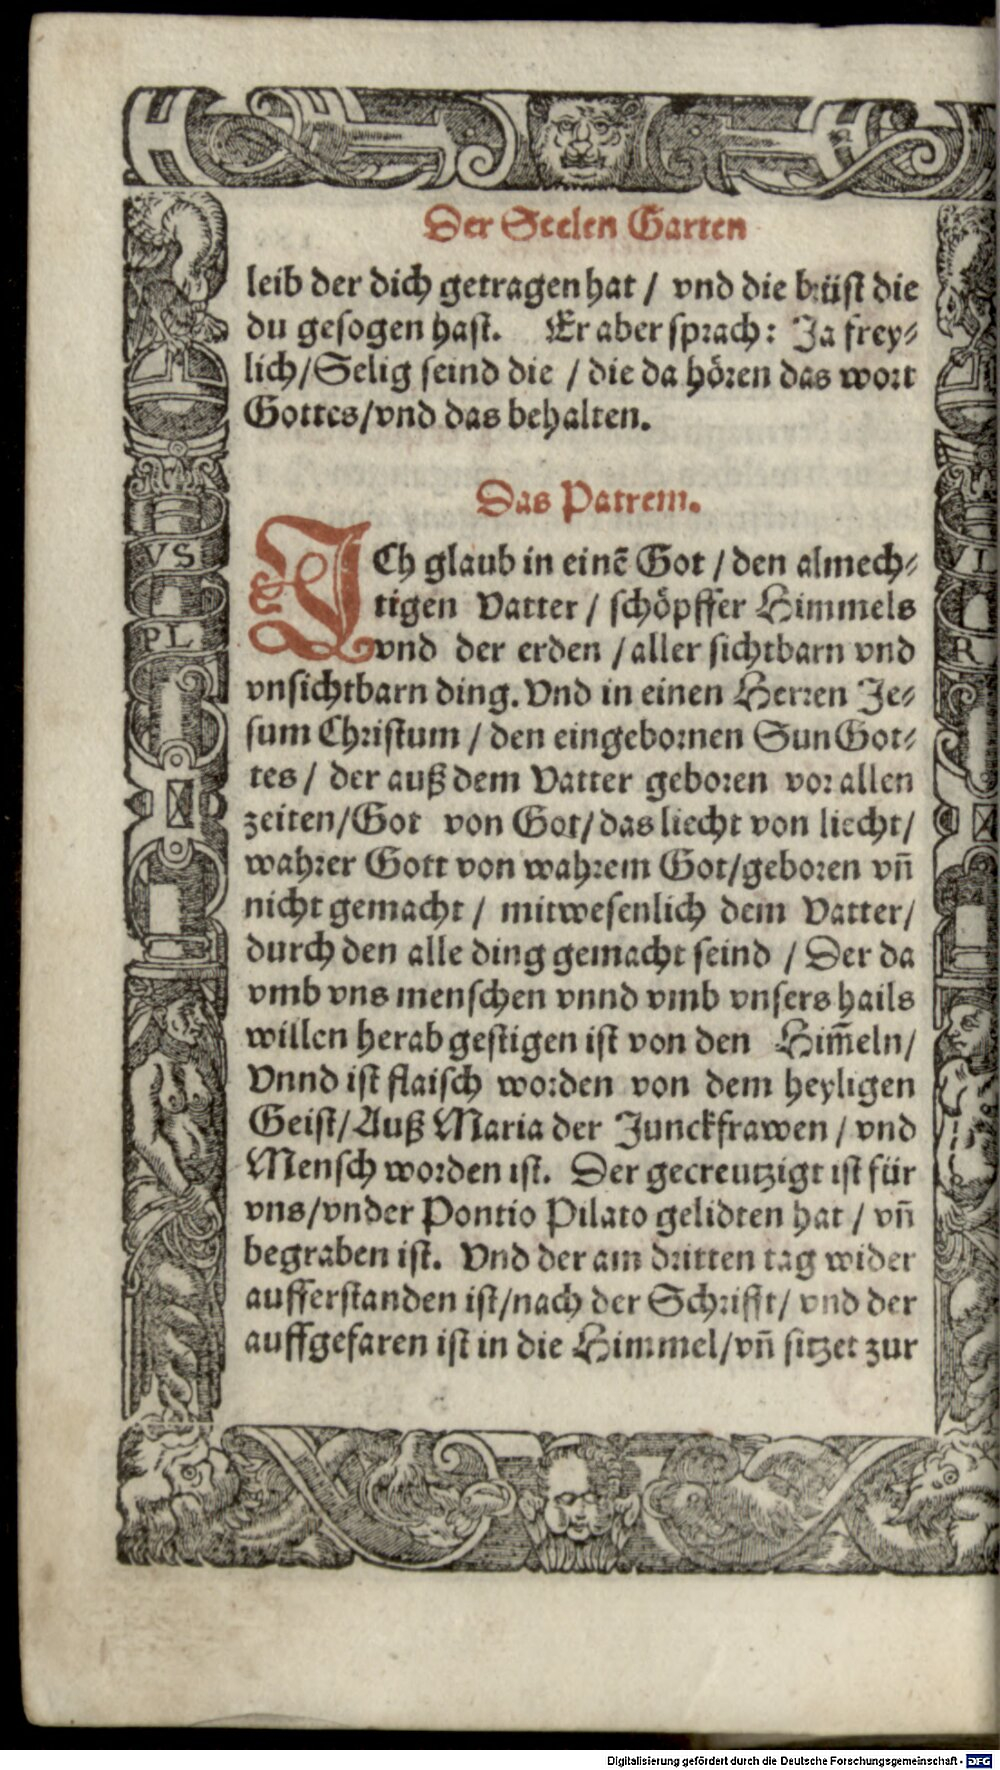 Der Seelen Garten
leib der dich getragen hat / vnd die brüst die
du gesogen hast. Er aber sprach: Ja frey⸗
lich/Selig seind die / die da hören das wort
Gottes/vnd das behalten.
Das Patrem.
ICh glaub in einē Got / den almech⸗
tigen Vatter / schöpffer Himmels
vnd der erden / aller sichtbarn vnd
vnsichtbarn ding. Vnd in einen Herren Je⸗
sum Christum / den eingebornen Sun Got⸗
tes / der auß dem Vatter geboren vor allen
zeiten/Got von Got/das liecht von liecht/
wahrer Gott von wahrem Got/geboren vñ
nicht gemacht / mitwesenlich dem Vatter/
durch den alle ding gemacht seind / Der da
vmb vns menschen vnnd vmb vnsers hails
willen herab gestigen ist von den Him̄eln/
Vnnd ist flaisch worden von dem heyligen
Geist/Auß Maria der Junckfrawen / vnd
Mensch worden ist. Der gecreutzigt ist für
vns/vnder Pontio Pilato gelidten hat / vñ
begraben ist. Vnd der am dritten tag wider
aufferstanden ist/nach der Schrifft/ vnd der
auffgefaren ist in die Himmel/vñ sitzet zur
VS
PL
VL
R
Digitalisierung gefördert durch die Deutsche Forschungsgemeinschaft - DFG